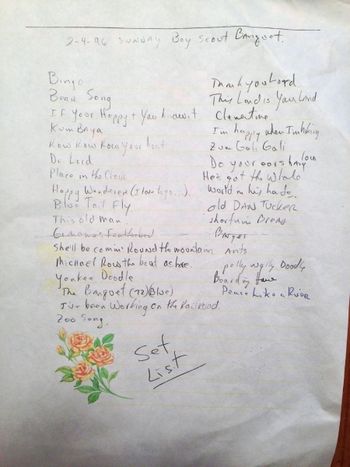 2-4-96 SUNDAY Boy Scout Banquet.
Bingo
Bear Song
IF Your Happy & You Know it
KumBaya
Row Row Row Your boat
Do Lord
Place in the Choir
Happy Wanderer (I love to go...)
Blue Tail Fly
This old man
Grandma's Featherbed
She'll be comin' Round the mountain
Michael Row the boat ashore
Yankee Doodle
The Banquet
I've been Working On the Railroad
Zoo Song
Thank you Lord
This Land is Your Land
Clementine
I'm happy when I'm hiking
Zum Gali Gali
Do your ears hang low
He's got the Whole
World in his hands
old DAN TUCKER
shortnin Bread
Ants
polly wolly Doodle
Boarding house
Peace Like a River
Set
List